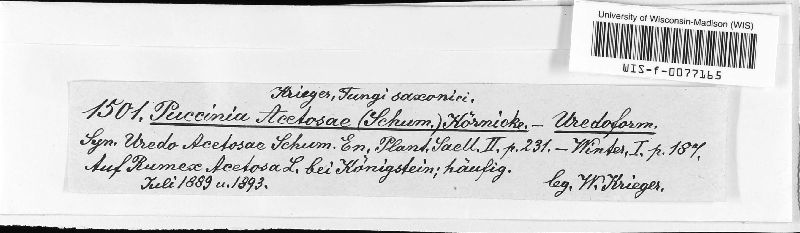 University of Wisconsin-Madison (WIS)
WIS-f-0077165
Krieger, Fungi saxonici.
1501. Puccinia Acetosae (Schum.) Körnicke. – Uredoform.
Syn. Uredo Acetosae Schum. En. Plant. Saell. II. p. 231. – Winter, I. p. 187.
Auf Rumex Acetosa L. bei Königstein, häufig.
Juli 1889 u. 1893. leg. W. Krieger.